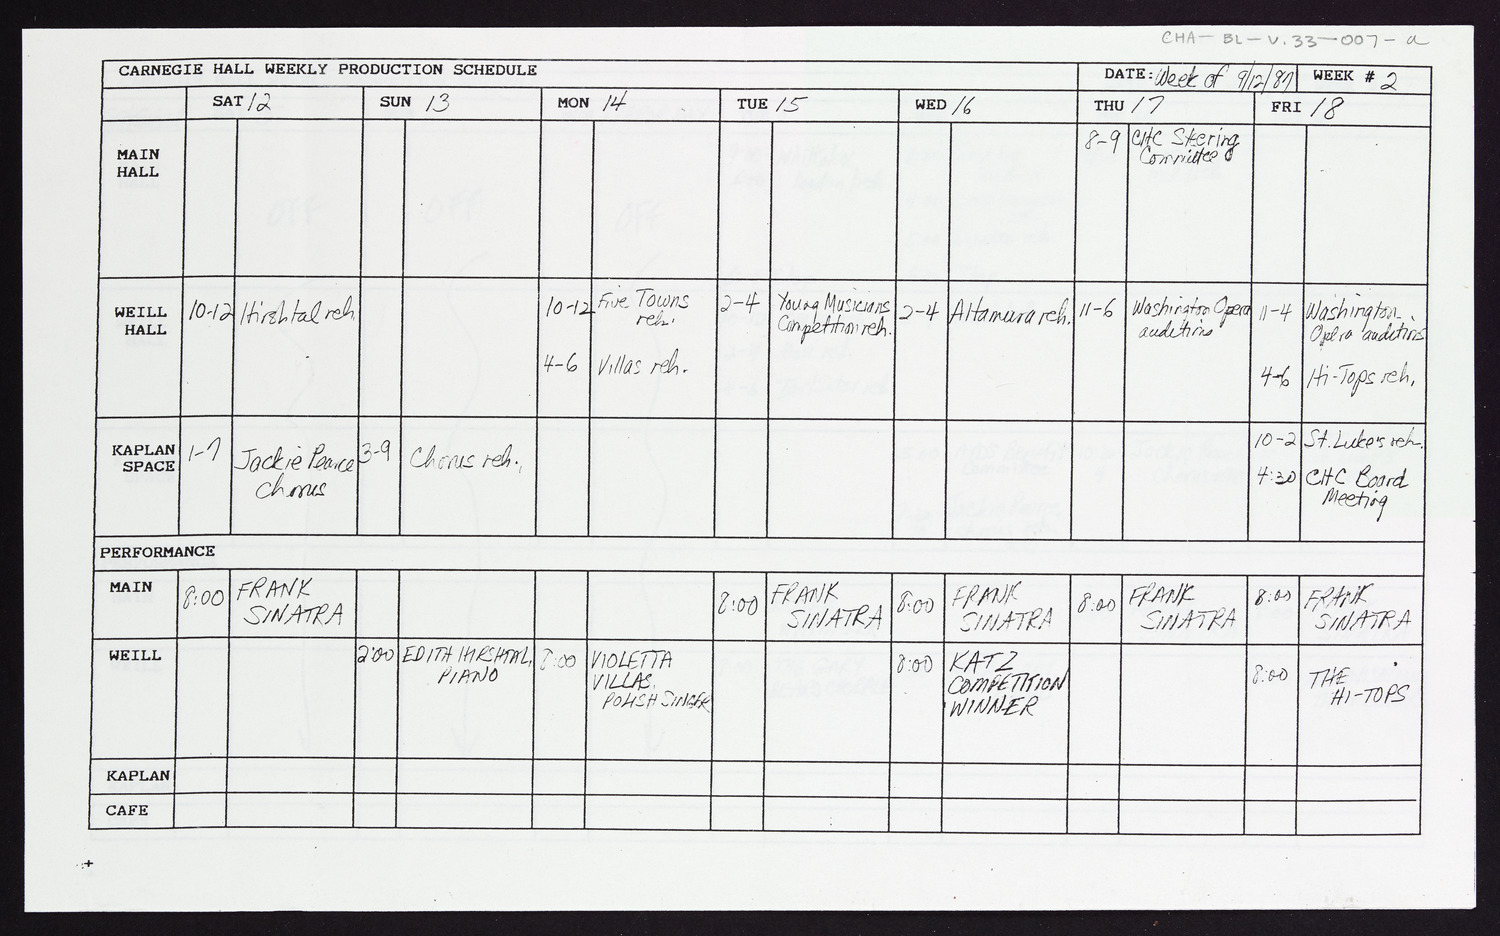 CHA-BL-V.33-007-a
CARNEGIE HALL WEEKLY PRODUCTION SCHEDULE
DATE: Week of 9/12/87
WEEK # 2
SAT 12
SUN 13
MON 14
TUE 15
WED 16
THU 17
FRI 18
MAIN
HALL
8-9 CHC Steering
Committee
WEILL
HALL
10-12 Hirshtal reh
10-12 Five Towns
reh.
4-6 Villas reh.
2-4 Young Musicians
Competition reh.
2-4 Altamura reh.
11-6 Washington Opera
auditions
11-4 Washington
Opera auditions
4-6 Hi-Tops reh.
KAPLAN
SPACE
1-7 Jackie Pearce
Chorus
3-9 Chorus reh.
10-2 St. Luke's reh.
4:30 CHC Board
Meeting
PERFORMANCE
MAIN
8:00 FRANK
SINATRA
8:00 FRANK
SINATRA
8:00 FRANK
SINATRA
8:00 FRANK
SINATRA
8:00 FRANK
SINATRA
WEILL
2:00 EDITH HIRSHTAL,
PIANO
8:00 VIOLETTA
VILLAS,
POLISH SINGER
8:00 KATZ
COMPETITION
WINNER
8:00 THE
HI-TOPS
KAPLAN
CAFE